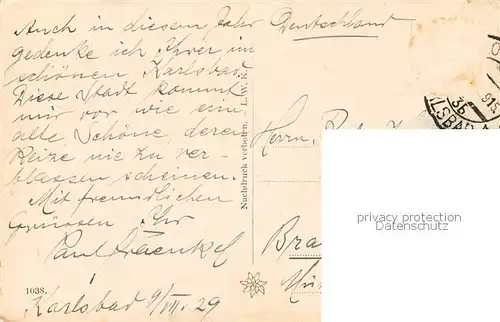 Auch in diesem Jahr
gedenke ich Ihrer im
schönen Karlsbad.
Diese Stadt kommt
mir vor wie eine
alte Schöne deren
Reize nie zu ver-
blassen scheinen.
Mit freundlichen
Grüssen Ihr
Paul Fraenkel
1038.
Karlsbad 9/VII. 29
Nachdruck verboten. — L. W. K.
Deutschland
Herrn
Bra
privacy protection
Datenschutz